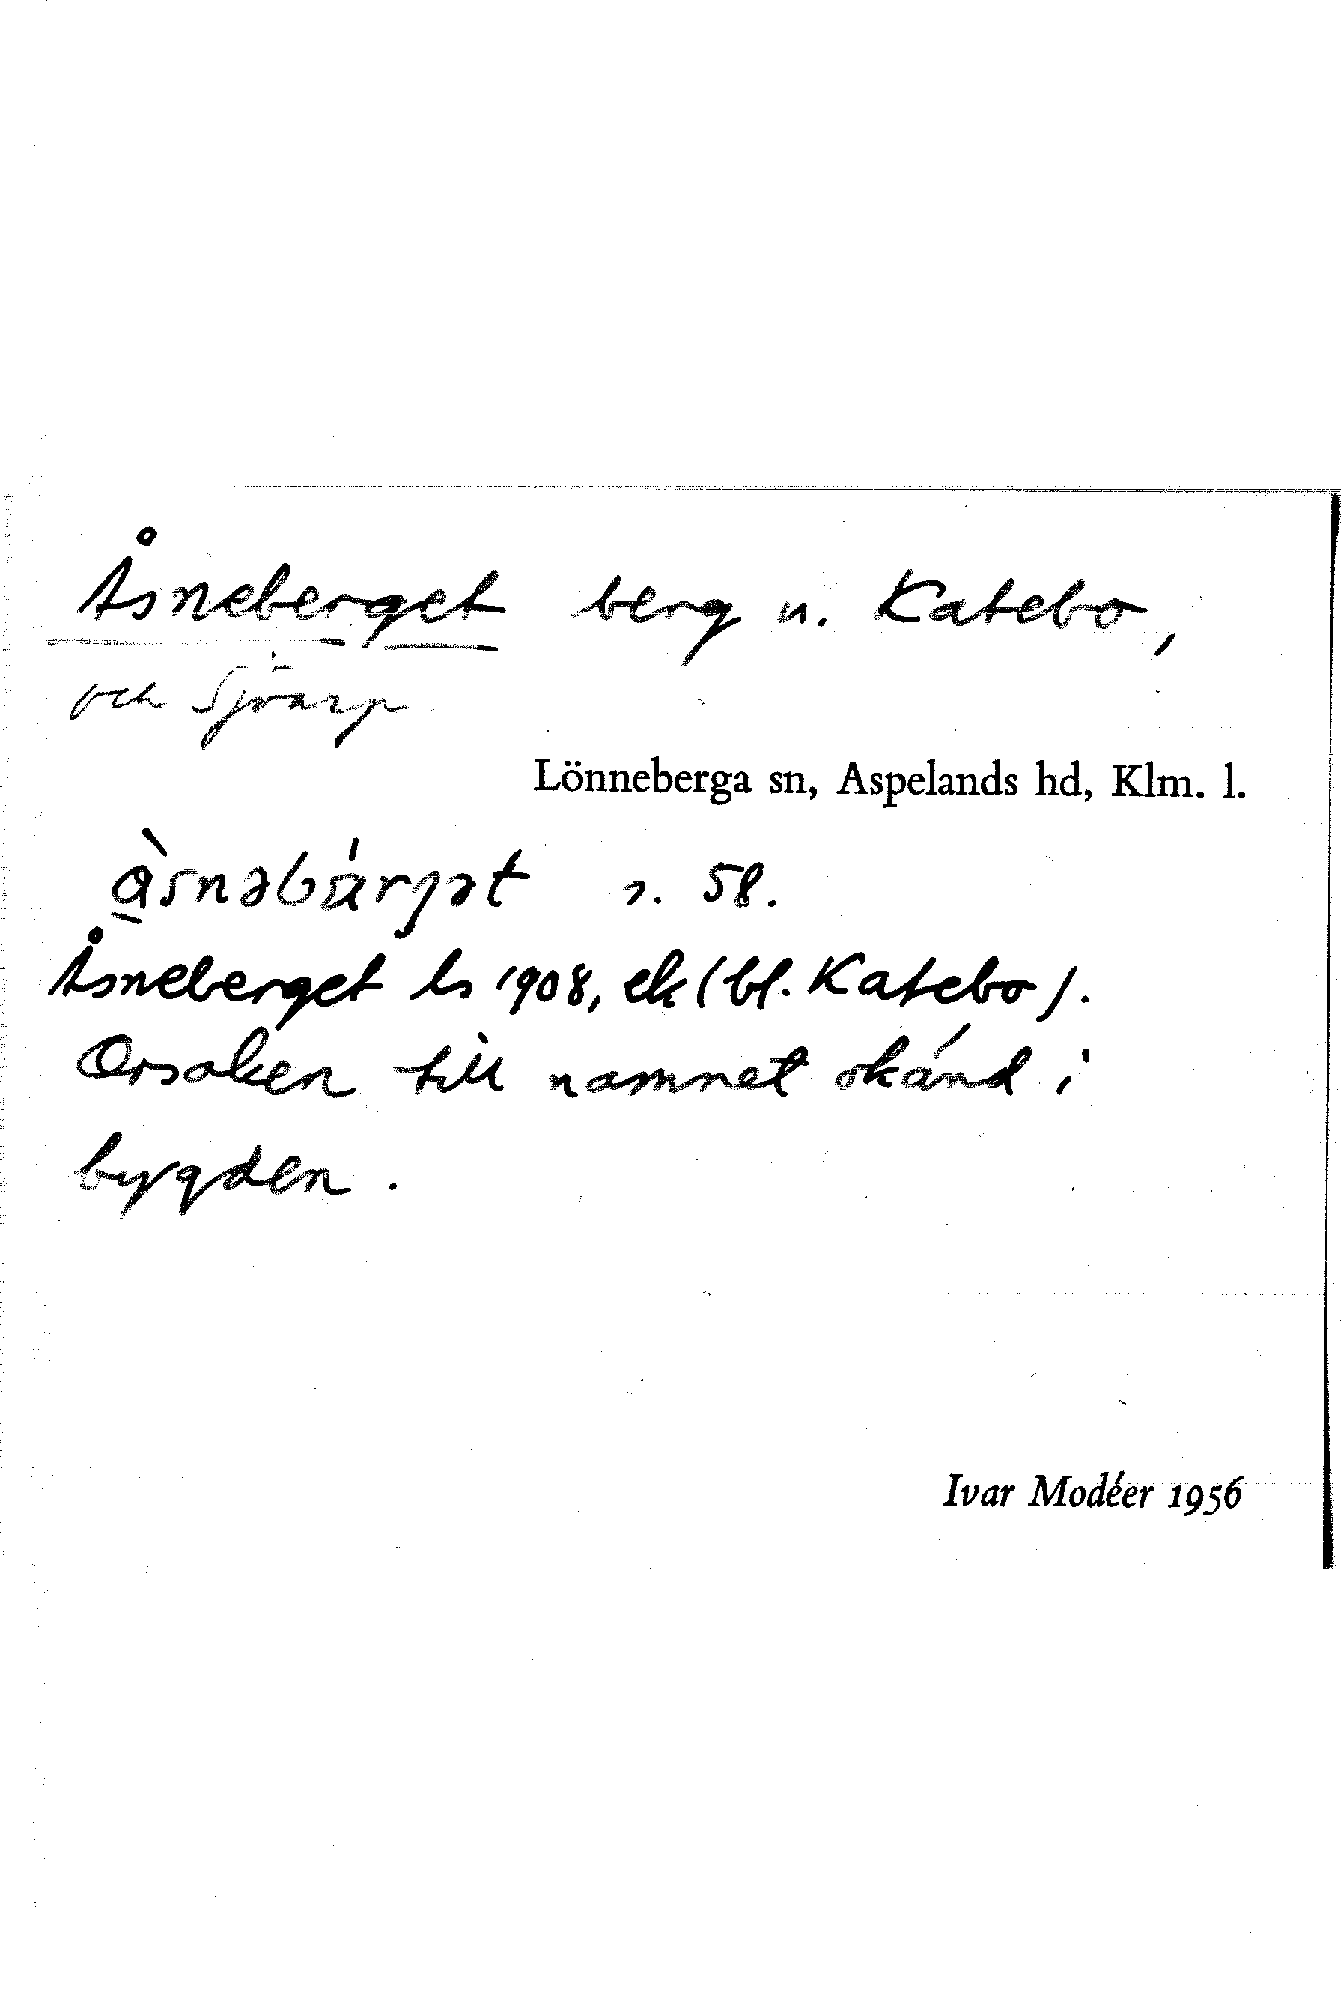 Åsneberget berg u. Katebo,
och Sjöarp
Lönneberga sn, Aspelands hd, Klm. l.
åsnəbärjət s. 58.
Åsneberget ls 1908, ek (bl. Katebo).
Orsaken till namnet okänd i
bygden.
Ivar Modéer 1956